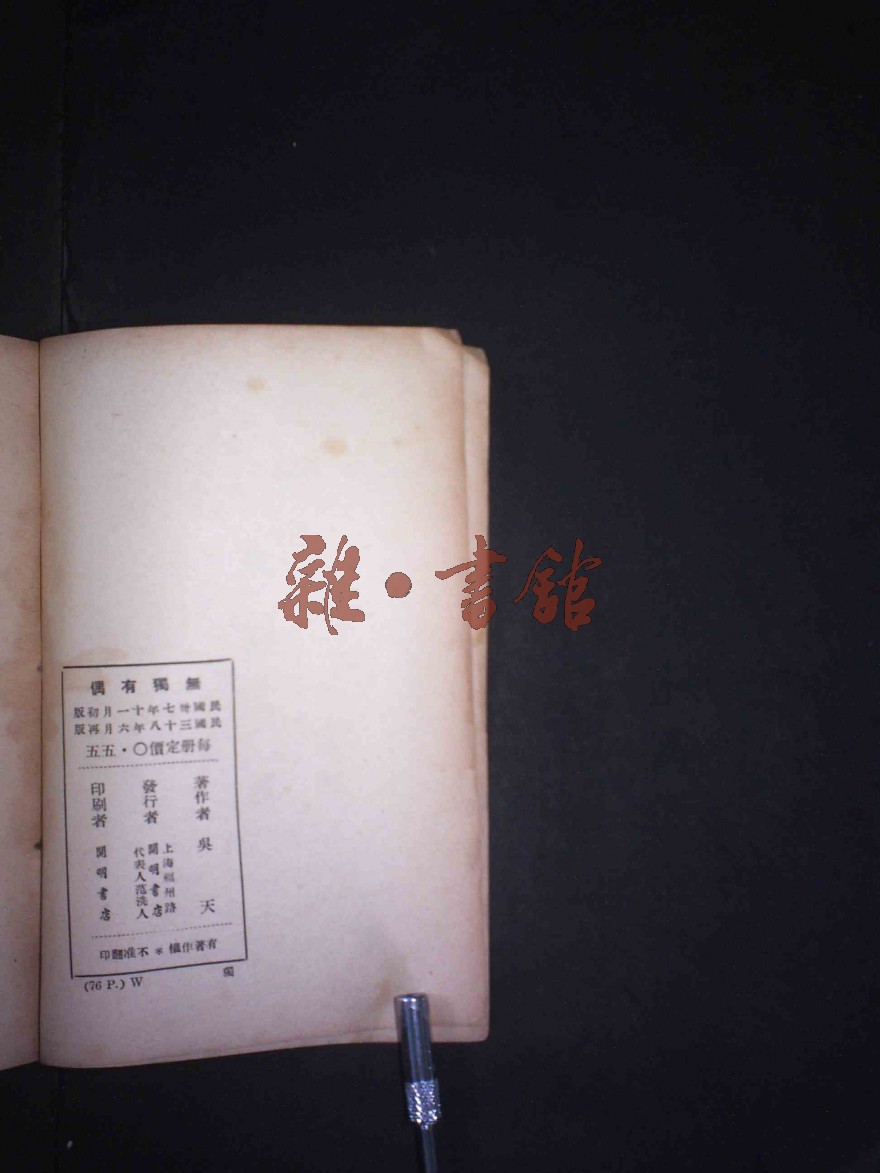 雜·書館
無獨有偶
民國卅七年十一月初版
民國三十八年六月再版
每册定價〇·五五
著作者 吳天
發行者 上海福州路 開明書店 代表人范洗人
印刷者 開明書店
有著作權＊不准翻印
(76 P.) W 獨